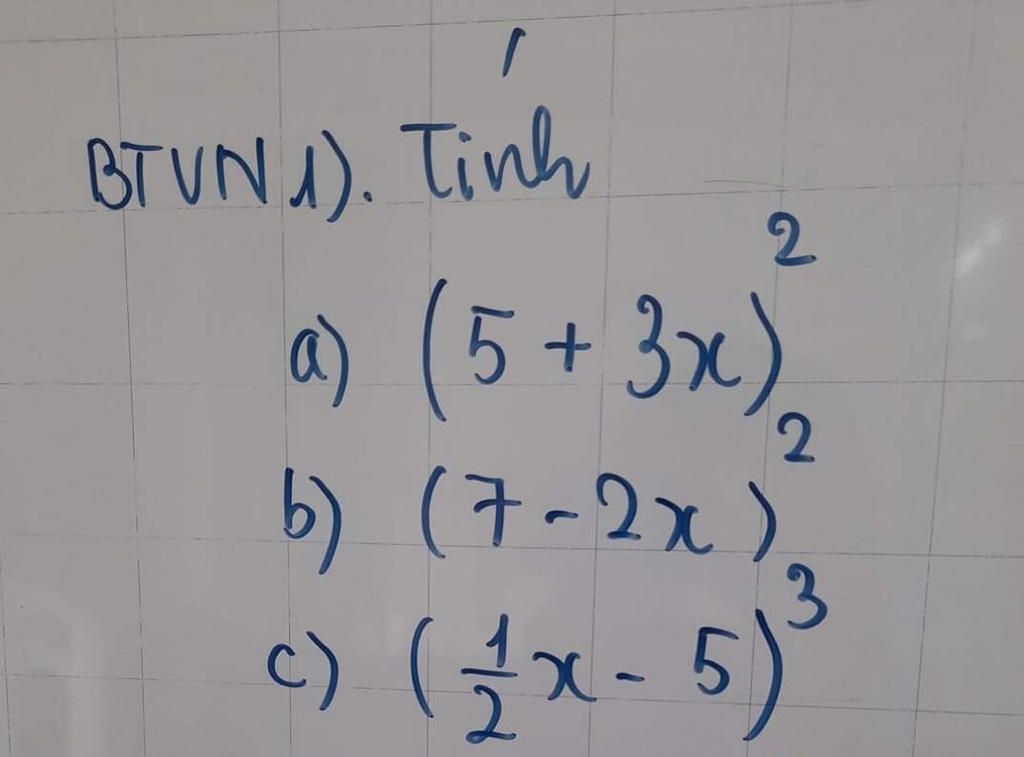 BTVN 1). Tính
a) (5 + 3x)²
b) (7 - 2x)²
c) (1/2 x - 5)³